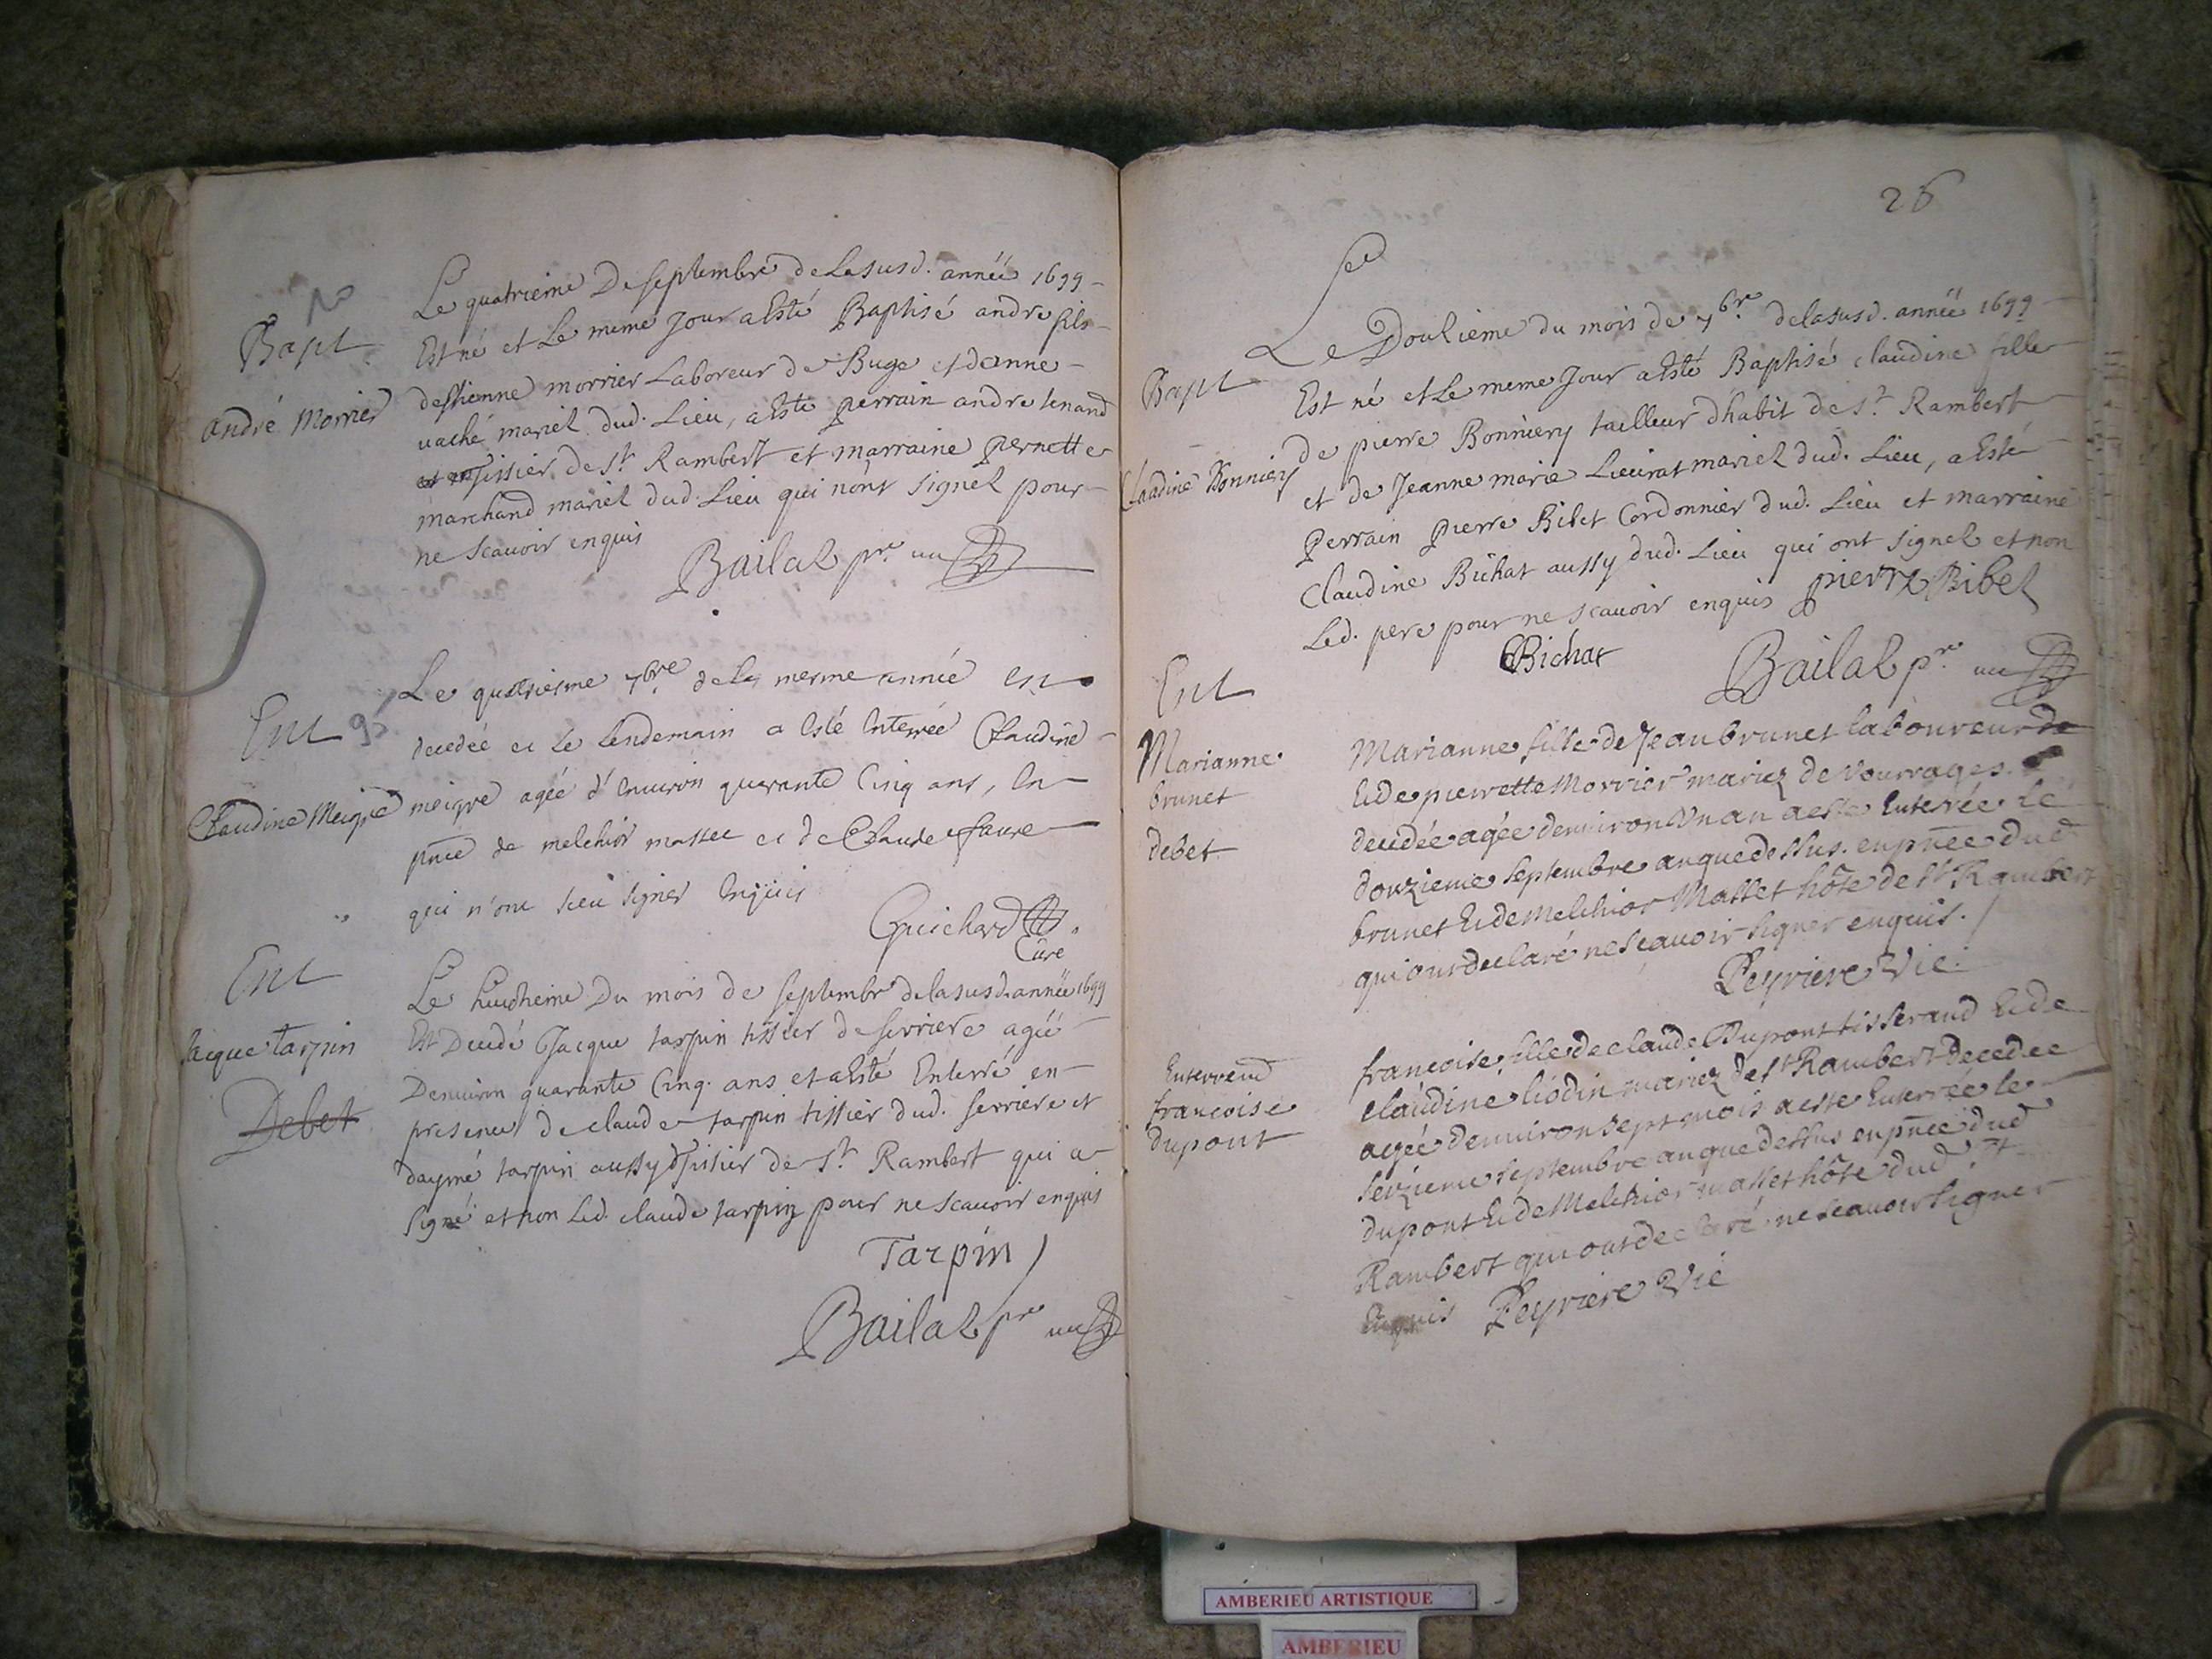 Bapt
andré Morrier
Le quatrieme De septembre de Lasusd. année 1699
Est né et Le meme Jour a Esté Baptisé andre fils
destienne morrier Laboreur de Buge et danne
uaché mariéz dud. Lieu, a esté perrain andre tenand
tissier de st Rambert et marraine pernette
marchand mariéz dud. Lieu qui nont signéz pour
ne scauoir enquis
Bailaz pre
Ent 9
Claudine Meigre
Le quatriesme 7bre de la mesme année est
decedée et Le Lendemain a Esté Enterrée Claudine
meigre agée d'Enuiron quarante Cinq ans, En
pnce de melchior massel et de Claude faure
qui n'ont sceu signer Enquis
Guichard
Cure
Ent
Jacque tarpin
Debet
Le huictieme Du mois de septembr delasusd. année 1699
Est Decedé Jacque tarpin tissier de serriere agé
Denuiron quarante Cinq. ans et a Esté Enterré en
presence de claude tarpin tissier dud. serriere et
daymé tarpin aussy tissier de st Rambert qui a
signé et non Led. claude tarpin pour ne scauoir enquis
Tarpin
Bailaz pre
26
Bapt
Claudine Bonniery
Le Douzieme du mois de 7bre delasusd. année 1699
Est né et Le meme Jour a Esté Baptisé claudine fille
de pierre Bonniery tailleur dhabit de st Rambert
et de Jeanne marie Lieurat mariéz dud. Lieu, a Esté
perrain pierre Bibet Cordonnier dud. Lieu et marraine
Claudine Bichat aussy dud. Lieu qui ont signéz et non
Led. pere pour ne scauoir enquis pierre Bibet
CBichat
Bailaz pre
Ent
Marianne
brunet
debet
Marianne fille de Jean brunet laboureur de
Et de pierrette Morrier mariez de Vourrages.
decedée agée denuiron Vn an a este Enterrée le
douzieme septembre an que dessus. en pnce dud
brunet Et de Melchior Massel hôte de st Rambert
qui ont declaré ne scauoir signer enquis.
Peyriere Vic.
Enterremt
francoise
dupont
francoise fille de claude Dupont tisserand Et de
claudine liodin mariez de st Rambert decedee
agée denuiron sept mois a este Enterrée le
seizieme septembre an que dessus en pnce dud
dupont Et de Melchior massel hôte dud st
Rambert qui ont declaré ne scauoir signer
Enquis Peyriere Vic
AMBERIEU ARTISTIQUE
AMBERIEU